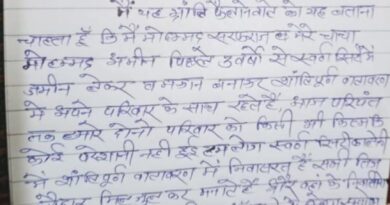 मैं यह भ्रांति फैलानेवाले को यह बताना
चाहता हूँ कि मैं मोहम्मद सरफराज व मेरे चाचा
मोहम्मद अमीन पिछले 3 वर्षों से स्वर्ण सिटी में
जमीन लेकर व मकान बनाकर शांतिपूर्ण वातावरण
में अपने परिवार के साथ रहते हैं, आज परियंत
तक हमारे दोनो परिवार को किसी भी किस्म कि
कोई परेशानी नही हुई हम लोग स्वर्ण सिटी कालोनी
में शांतिपूर्ण वातावरण में निवासरत हैं, सभी
मिल जुल कर मनाते हैं और वहां के निवासी